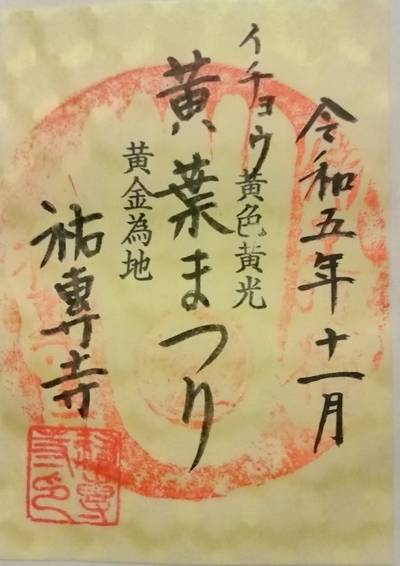 令和五年十一月
イチョウ
黄色黄光
黄葉まつり
黄金為地
祐専寺